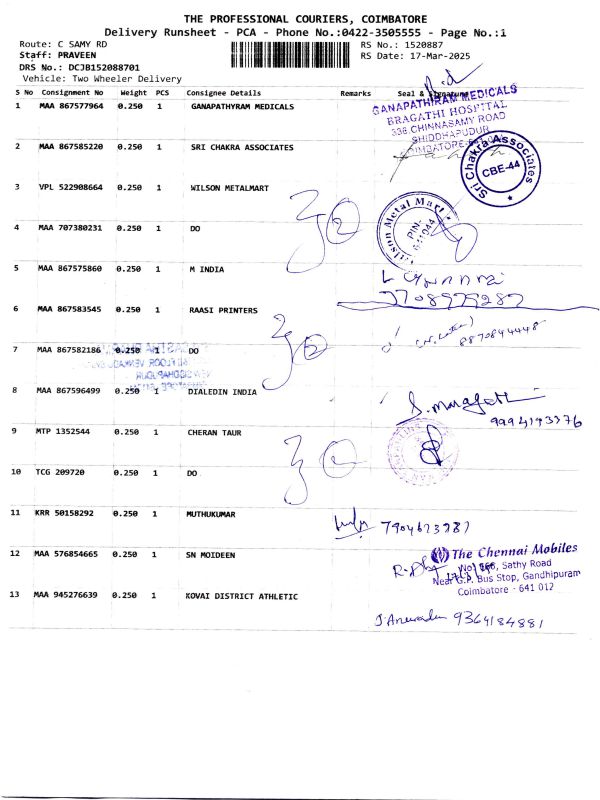 THE PROFESSIONAL COURIERS, COIMBATORE
Delivery Runsheet - PCA - Phone No.:0422-3505555 - Page No.:1
Route: C SAMY RD RS No.: 1520887
Staff: PRAVEEN RS Date: 17-Mar-2025
DRS No.: DCJB152088701
Vehicle: Two Wheeler Delivery
S No Consignment No Weight PCS Consignee Details Remarks Seal & Signature
1 MAA 867577964 0.250 1 GANAPATHYRAM MEDICALS
GANAPATHIRAM MEDICALS
BRAGATHI HOSPITAL
336, CHINNASAMY ROAD
SIDDHAPUDUR
COIMBATORE
2 MAA 867585220 0.250 1 SRI CHAKRA ASSOCIATES
Sri Chakra Associates
CBE-44
3 VPL 522908664 0.250 1 WILSON METALMART
Wilson Metal Mart
PIN-
641044
4 MAA 707380231 0.250 1 DO
5 MAA 867575860 0.250 1 M INDIA
7708979287
6 MAA 867583545 0.250 1 RAASI PRINTERS
8870844448
7 MAA 867582186 0.250 1 DO
8 MAA 867596499 0.250 1 DIALEDIN INDIA
9994193376
9 MTP 1352544 0.250 1 CHERAN TAUR
10 TCG 209720 0.250 1 DO
11 KRR 50158292 0.250 1 MUTHUKUMAR
7904623987
12 MAA 576854665 0.250 1 SN MOIDEEN
The Chennai Mobiles
Sathy Road
Near G.P. Bus Stop, Gandhipuram
Coimbatore - 641 012
13 MAA 945276639 0.250 1 KOVAI DISTRICT ATHLETIC
9364184881